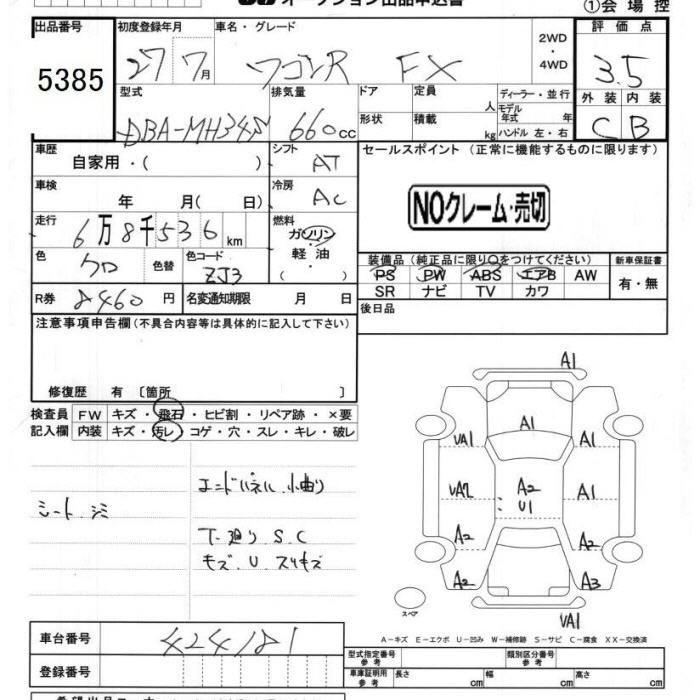 オークション出品申込書
①会場控
出品番号
5385
初度登録年月
27 7月
車名・グレード
ワゴンR FX
2WD
・
4WD
評価点
3.5
外装 内装
C B
型式
DBA-MH34S
排気量
660cc
ドア
形状
定員
人
積載
kg
ディーラー・並行
モデル年式 年
ハンドル 左・右
車歴
自家用・( )
シフト
AT
セールスポイント (正常に機能するものに限ります)
車検
年 月( 日)
冷房
AC
NOクレーム・売切
走行
6万8千536km
燃料
ガソリン
・
軽油
・
( )
色
クロ
色替
色コード
ZJ3
装備品 (純正品に限り○をつけてください)
PS PW ABS エアB AW
SR ナビ TV カワ
新車保証書
有・無
R券
8460円
名変通知期限 月 日
後日品
注意事項申告欄 (不具合内容等は具体的に記入して下さい)
修復歴 有 〔箇所 〕
検査員 FW キズ・飛石・ヒビ割・リペア跡・×要
記入欄 内装 キズ・汚レ・コゲ・穴・スレ・キレ・破レ
シート シミ
エンドパネル 小曲り
下廻り S.C
キズ.U.スリキズ
A1
A1
UA1 A1
UA2 A2 A1
U1
A2 A2
A2 A3
UA1
スペア
A-キズ E-エクボ U-凹み W-補修跡 S-サビ C-腐食 XX-交換済
車台番号
424181
登録番号
型式指定番号 参考
類別区分番号 参考
車庫証明用 参考 長さ cm 幅 cm 高さ cm